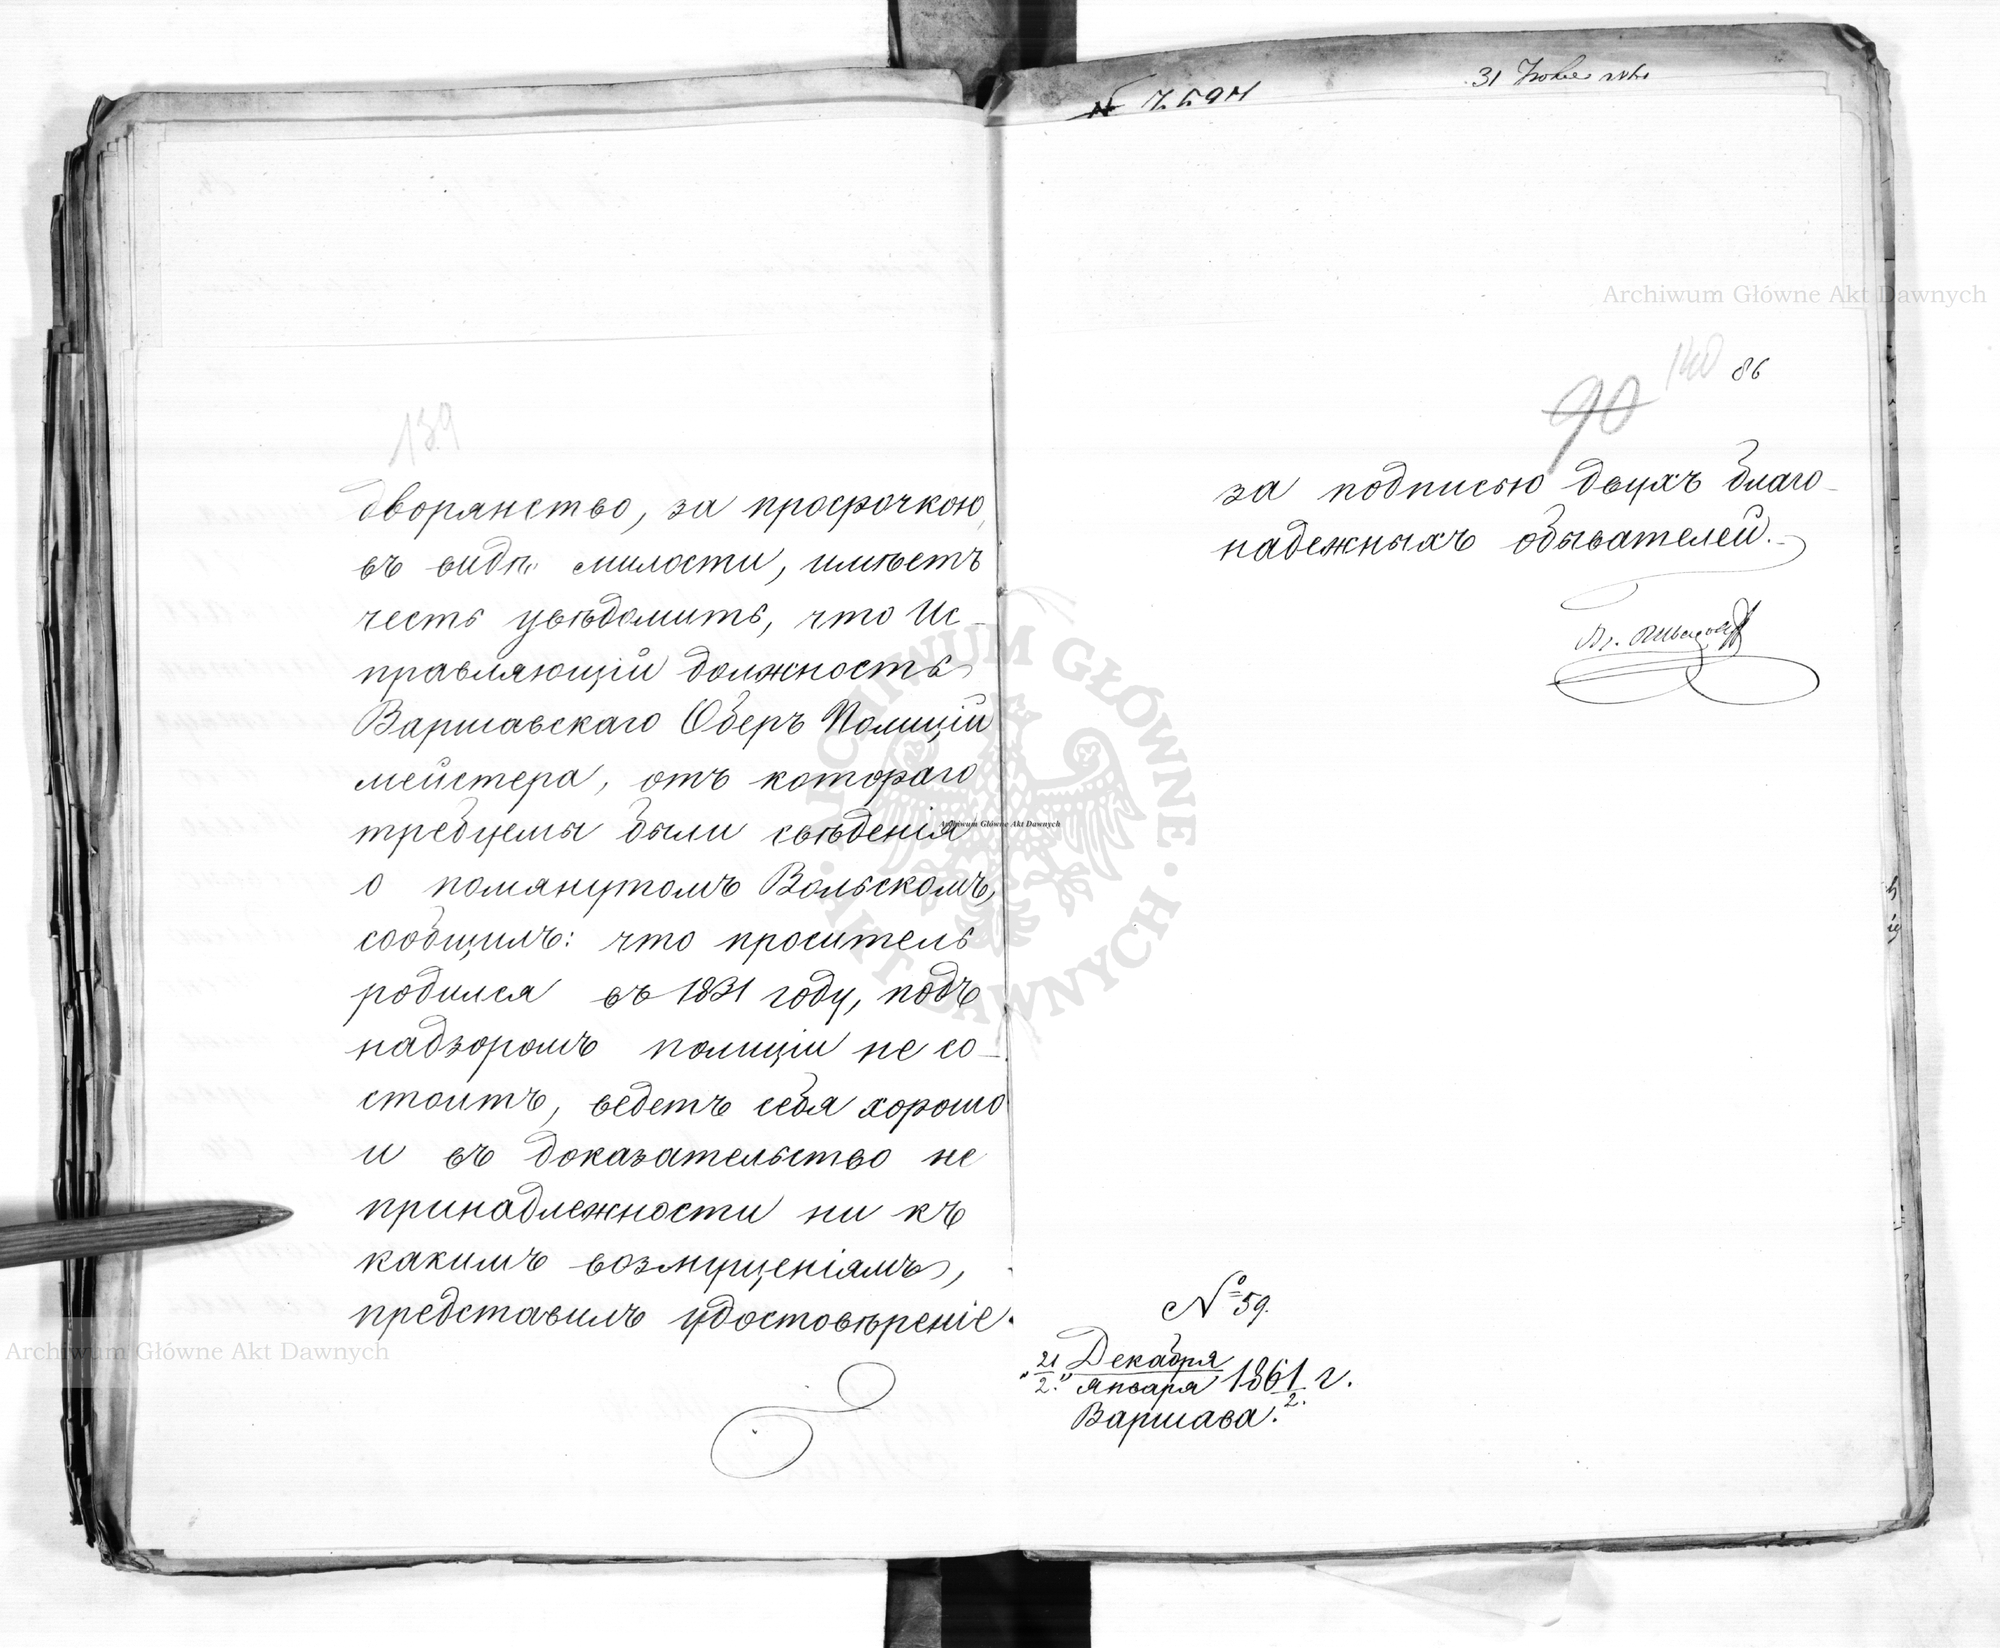 139
дворянство, за просрочкою,
въ видѣ милости, имѣетъ
честь увѣдомить, что Ис-
правляющій должность
Варшавскаго Оберъ Полиціи
мейстера, отъ котораго
требуемы были свѣденія
о помянутомъ Вольскомъ,
сообщилъ: что проситель
родился въ 1831 году, подъ
надзоромъ полиціи не со-
стоитъ, ведетъ себя хорошо
и въ доказательство не
принадлежности ни къ
какимъ возмущеніямъ,
представилъ удостовѣреніе
31
140 86
90
за подписью двухъ благо-
надежныхъ обывателей.
№ 59.
"21/2." Декабря/Января 1861/2. г.
Варшава.
Archiwum Główne Akt Dawnych
Archiwum Główne Akt Dawnych
Archiwum Główne Akt Dawnych
ARCHIWUM GŁÓWNE · AKT DAWNYCH ·